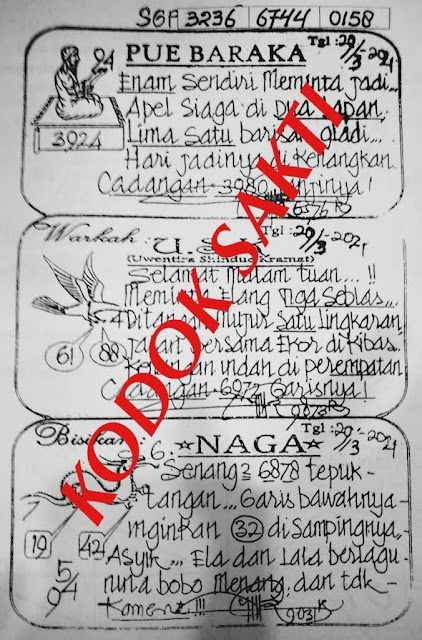 SGP 3236 6744 0158
PUE BARAKA
Tgl: 20/3-2021
Enam Sendiri Meminta jadi...
Apel Siaga di Dua Lapan.
Lima Satu barisan gladi...
Hari jadinya di Kenangkan.
Cadangan 3980
3924
Warkah: U.S.K
Tgl: 20/3-2021
(Uwentira Shinduo Kramat)
Selamat Malam tuan...!!
Elang Tiga Seblas...
Mujur Satu lingkaran,
Jalan bersama Ekor di Kibas.
indah di perempatan
Cadangan 6972 Garisnya!
61 88
Bisikan: NAGA
Tgl: 20/3-2021
Senang 6878 tepuk-
tangan... Garis bawahnya-
inginkan 32 di Sampingnya,-
Asyik... Ela dan Lala berlagu-
nina bobo Menang, dan tdk-
Koment!!!
19 42
KODOK SAKTI